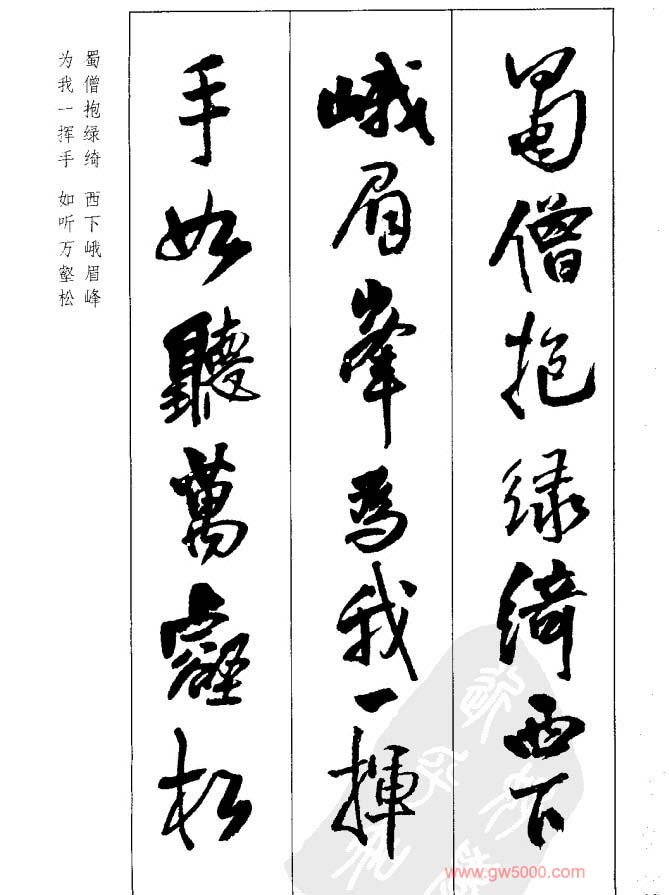 蜀僧抱绿绮西下
峨眉峯為我一揮
手如聽萬壑松
蜀僧抱绿绮 西下峨眉峰
为我一挥手 如听万壑松
www.gw5000.com